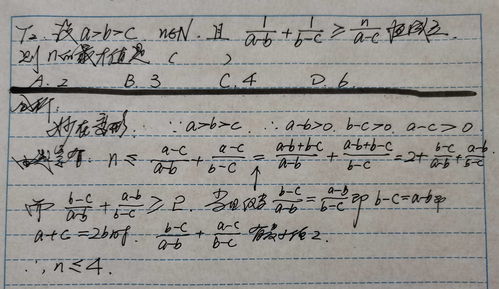 T₂. 设 a>b>c. n∈N. 且 1/(a-b) + 1/(b-c) ≥ n/(a-c) 恒成立.
则 n的最大值是 ( )
A. 2 B. 3 C. 4 D. 6.
分析:
∵ a>b>c. ∴ a-b>0. b-c>0. a-c>0.
n ≤ (a-c)/(a-b) + (a-c)/(b-c) = (a-b+b-c)/(a-b) + (a-b+b-c)/(b-c) = 2 + (b-c)/(a-b) + (a-b)/(b-c)
而 (b-c)/(a-b) + (a-b)/(b-c) ≥ 2. 当且仅当 (b-c)/(a-b) = (a-b)/(b-c) 即 b-c=a-b 即
a+c=2b时. (b-c)/(a-b) + (a-c)/(b-c) 有最小值2.
∴ n ≤ 4.